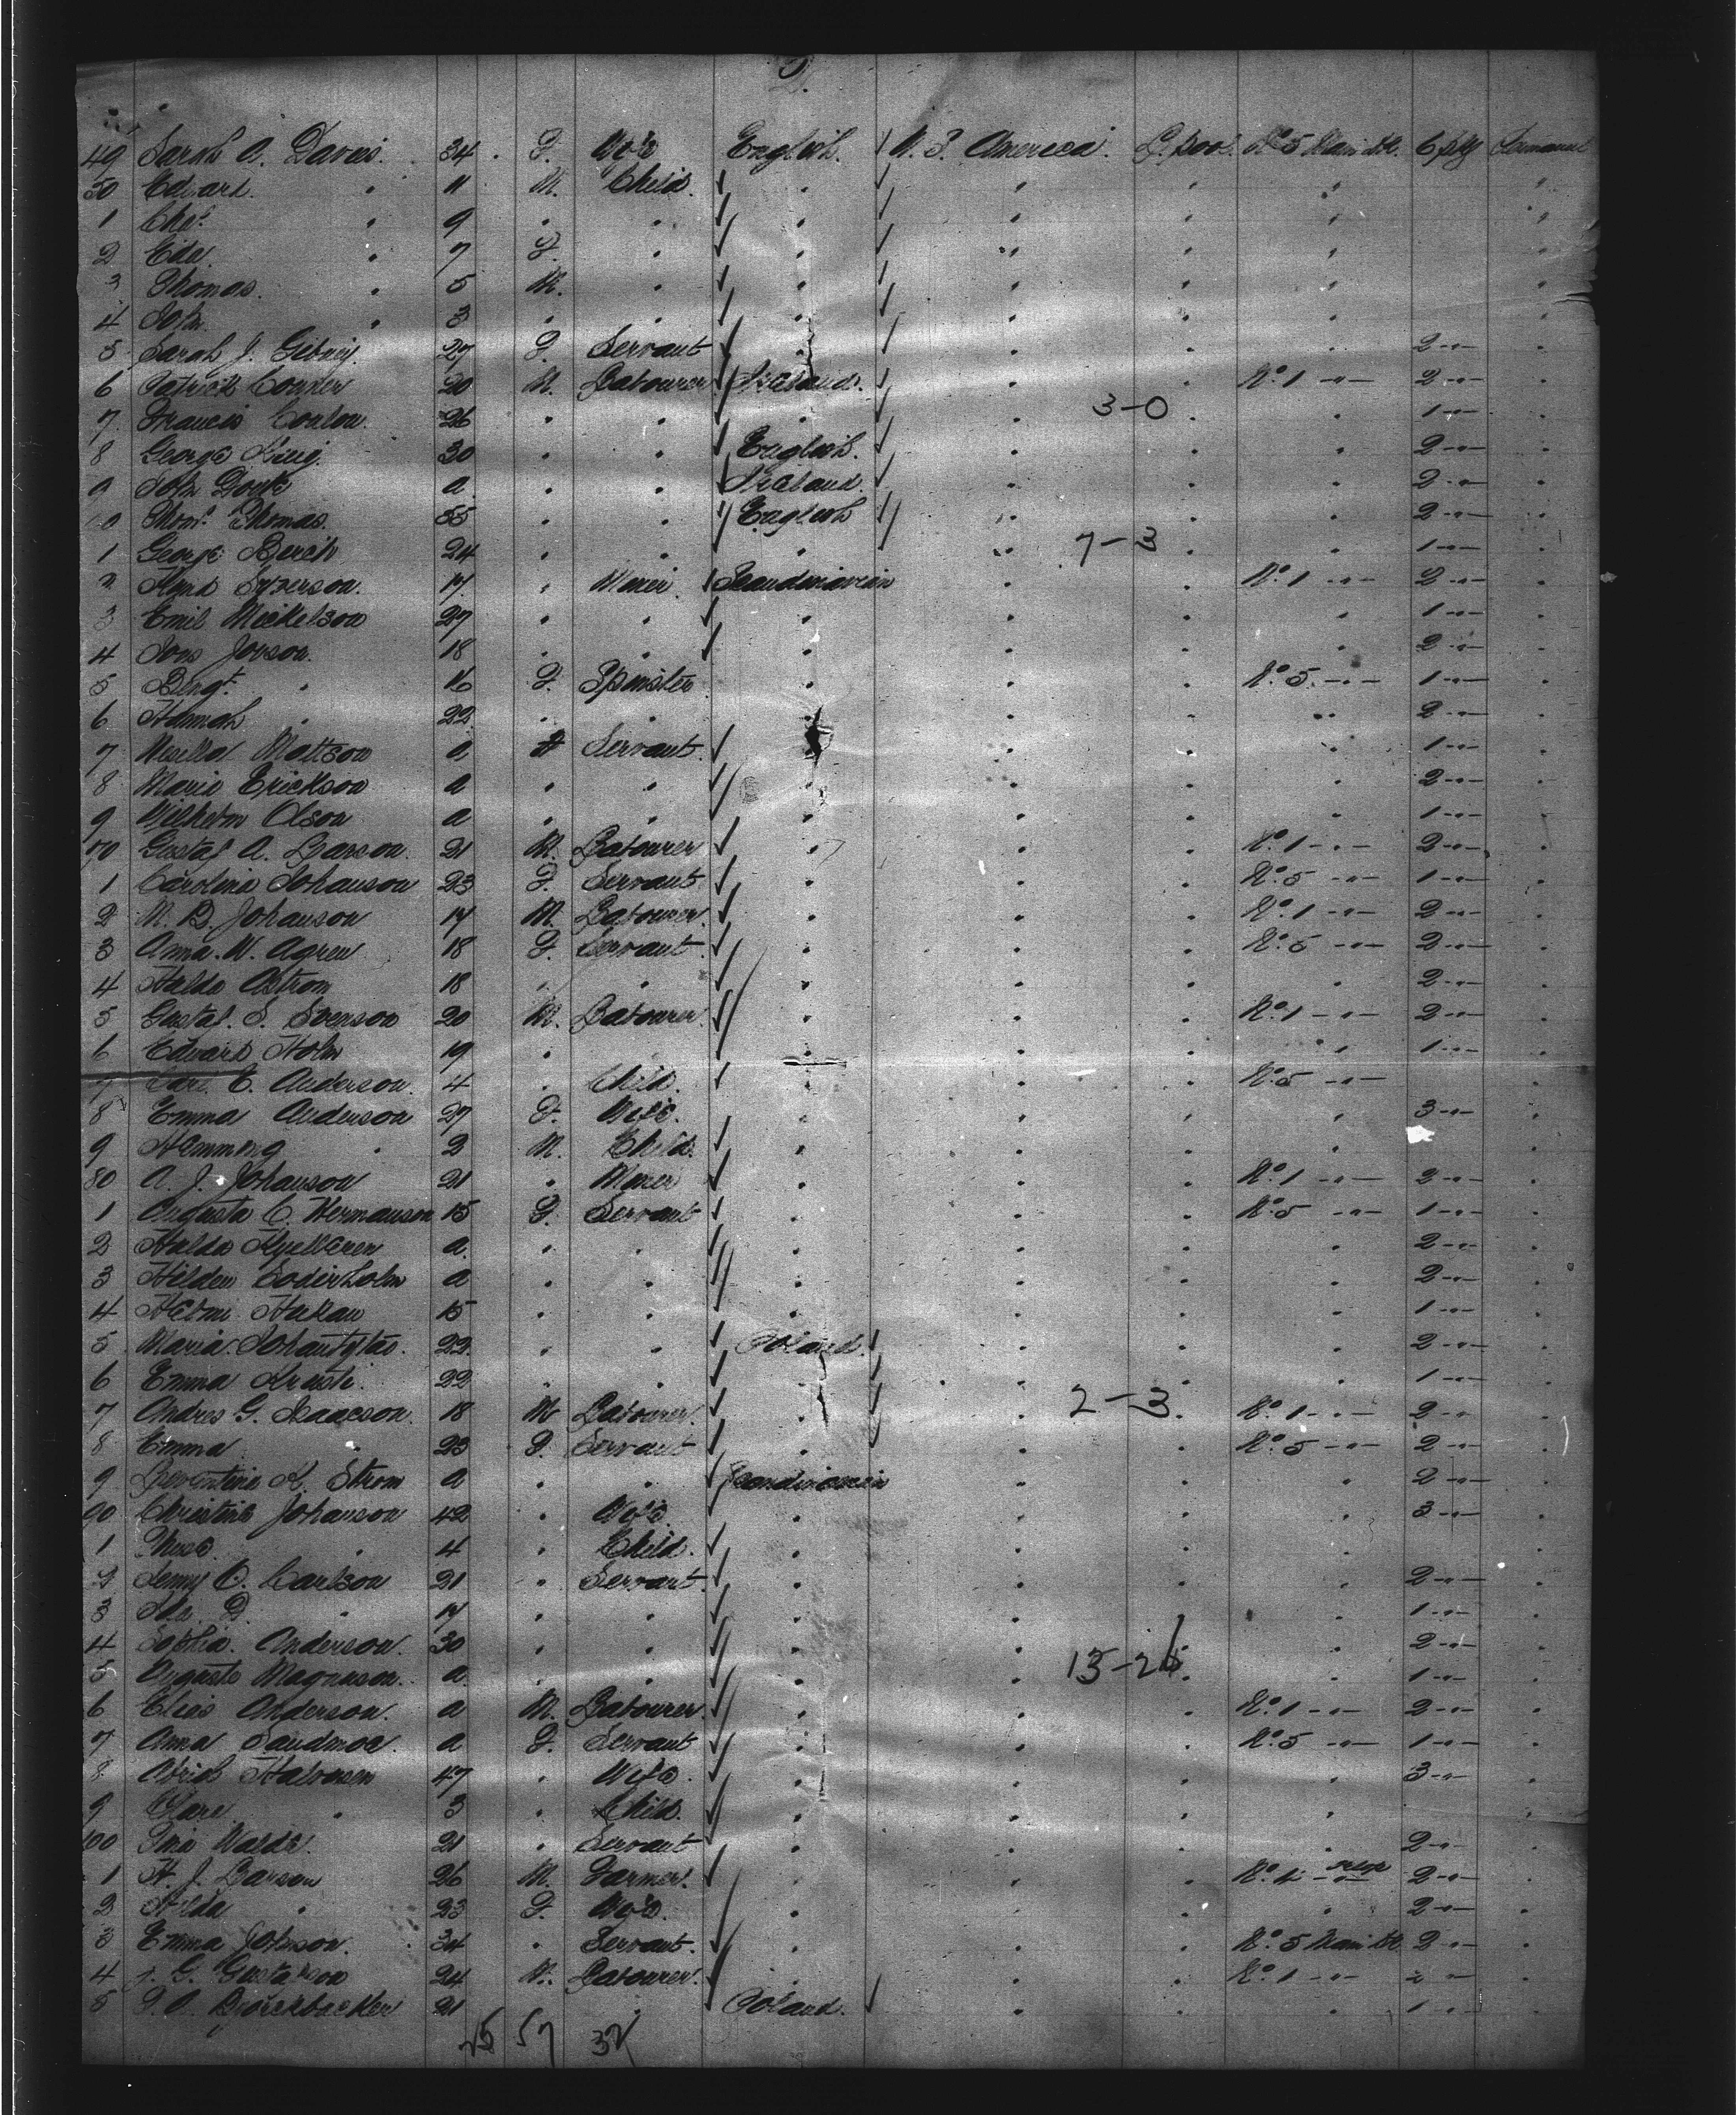 2.
49 Sarah A. Davis. 34 F. Wife English. U. S. America. L.pool. No 5 Main dk. 6 pkg Permanent
50 Edward. " 11 M. Child. " " " " "
1 Chas. " 9 " " " " " " "
2 Eda " 7 F. " " " " " "
3 Thomas. " 5 M. " " " " " "
4 John. " 3 " " " " " " "
5 Sarah J. 27 F. Servant " " " " 2 -"- "
6 Patrick Conner 20 M. Labourer Ireland. " " No. 1 -"- 2 -"- "
7 Francis Conlon. 26 " " " " 3-0 " " 1 -"- "
8 George King. 30 " " English. " " " 2 -"- "
9 John Doyle a " " Ireland. " " " 2 -"- "
60 Thos. Thomas. 55 " " English " " " 2 -"- "
1 George Berch 24 " " " " 7-3 " " 1 -"- "
2 17 " Miner. Scandinavian " " No. 1 -"- 2 -"- "
3 Emil Mickelson 27 " " " " " " 1 -"- "
4 Jonson. 18 " " " " " " 2 -"- "
5 Bengt. " 16 F. Spinster " " " No. 5. -"- 1 -"- "
6 Hannah " 22 " " " " " " 2 -"- "
7 Mattson a " Servant " " " " 1 -"- "
8 Maria Erickson a " " " " " " 2 -"- "
9 Wilhelm Olson a " " " " " " 1 -"- "
70 Gustaf A. Larson. 21 M. Labourer " " " No. 1 -"- 2 -"- "
1 Carolina Johanson 23 F. Servant " " " No. 5 -"- 1 -"- "
2 M. B. Johanson 17 M. Labourer. " " " No. 1 -"- 2 -"- "
3 Anna. W. Agren 18 F. Servant " " " No. 5 -"- 2 -"- "
4 Hulda Astrom 18 " " " " " " 2 -"- "
5 Gustaf. S. Svenson 20 M. Labourer. " " " No. 1 -"- 2 -"- "
6 Edward Holm 19 " " " " " 1 -"- "
7 Carl E. Anderson. 4 " Child. " " " No. 5 -"- "
8 Emma Anderson 27 F. Wife. " " " " 3 -"- "
9 Hemming " 2 M. Child. " " " " "
80 A. J. Johanson 21 " Miner " " " No. 1 -"- 2 -"- "
1 Augusta C. Hermanson 15 F. Servant " " " No. 5 -"- 1 -"- "
2 Hulda Kjellgren a " " " " " " 2 -"- "
3 Hilden Soderholm a " " " " " " 2 -"- "
4 15 " " " " " " 1 -"- "
5 Maria. 22 " " Poland. " " " 2 -"- "
6 Emma 22 " " " " " " 1 -"- "
7 Andres G. Isaacson. 18 M Labourer. " " 2-3. No. 1 -"- 2 -"- "
8 Emma " 23 F. Servant " " " No. 5 -"- 2 -"- "
9 K. Strom a " " Scandinavian " " " 2 -"- "
90 Christina Johanson 42 " Wife. " " " " 3 -"- "
1 " 4 " Child. " " " " "
2 Jenny C. Carlson 21 " Servant. " " " " 2 -"- "
3 Ida. D. " 17 " " " " " " 1 -"- "
4 Sophia. Anderson. 30 " " " " " " 2 -"- "
5 Augusta Magnuson. a " " " " 13-26 " " 1 -"- "
6 Elias Anderson. a M. Labourer. " " " No. 1 -"- 2 -"- "
7 Anna Sandmoe. a F. Servant " " " No. 5 -"- 1 -"- "
8 Halvorsen 47 " Wife. " " " " 3 -"- "
9 " 3 " Child. " " " " "
100 21 " Servant " " " " 2 -"- "
1 H. J. Larson 26 M. Farmer. " " " No. 4 -"- 2 -"- "
2 Hilda " 23 F. Wife. " " " " 2 -"- "
3 Emma Johnson. 34 " Servant. " " " No. 5 Main dk 2 -"- "
4 J. G. Gustafson 24 M. Labourer. " " " No. 1 -"- 2 -"- "
5 21 " Poland. " " " 1 -"- "
25 57 32